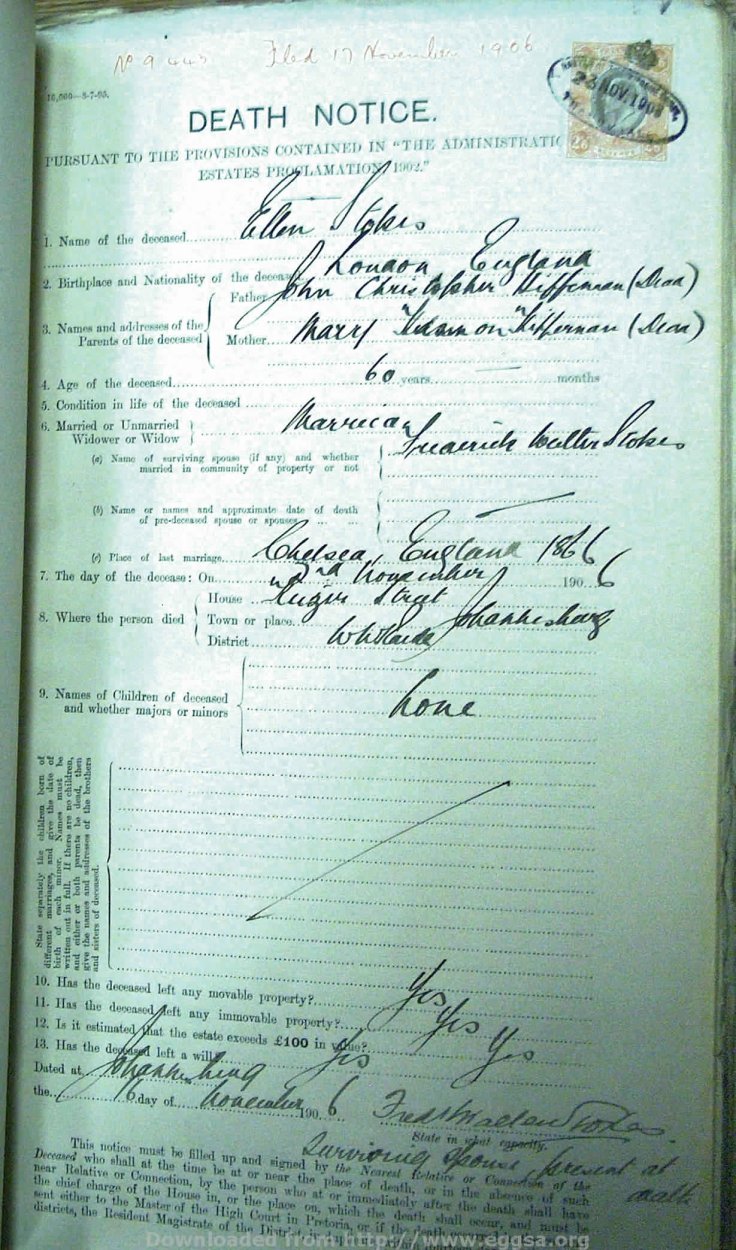 No 9443 Filed 17 November 1906
10,000—8-7-05.
23 NOV. 1906
DEATH NOTICE.
PURSUANT TO THE PROVISIONS CONTAINED IN "THE ADMINISTRATIO
ESTATES PROCLAMATION, 1902."
1. Name of the deceased Ellen Stokes
2. Birthplace and Nationality of the deceased London England
3. Names and addresses of the Parents of the deceased
Father John Christopher Kiffernan (Dead)
Mother Mary Kiffernan (Dead)
4. Age of the deceased 60 years — months
5. Condition in life of the deceased
6. Married or Unmarried Married
Widower or Widow
(a) Name of surviving spouse (if any) and whether Frederick Walter Stokes
married in community of property or not
(b) Name or names and approximate date of death
of pre-deceased spouse or spouses
(c) Place of last marriage Chelsea, England 1866
7. The day of the decease: On 3rd November 1906
8. Where the person died
House Street
Town or place Johannesburg
District
9. Names of Children of deceased
and whether majors or minors
None
State separately the children born of
different marriages, and give the date of
birth of each minor. Names must be
written out in full. If there are no children,
and either or both parents be dead, then
give the names and addresses of the brothers
and sisters of deceased.
10. Has the deceased left any movable property? Yes
11. Has the deceased left any immovable property? Yes
12. Is it estimated that the estate exceeds £100 in value? Yes
13. Has the deceased left a will? Yes
Dated at Johannesburg
the 16 day of November 1906
Stokes
State in what capacity.
Surviving Spouse, present at
death
This notice must be filled up and signed by the Nearest Relative or Connection of the
Deceased who shall at the time be at or near the place of death, or in the absence of such
near Relative or Connection, by the person who at or immediately after the death shall have
the chief charge of the House in, or the place on, which the death shall occur, and must be
sent either to the Master of the High Court in Pretoria, or, if the death
districts, the Resident Magistrate of the District
Downloaded from http://www.eggsa.org